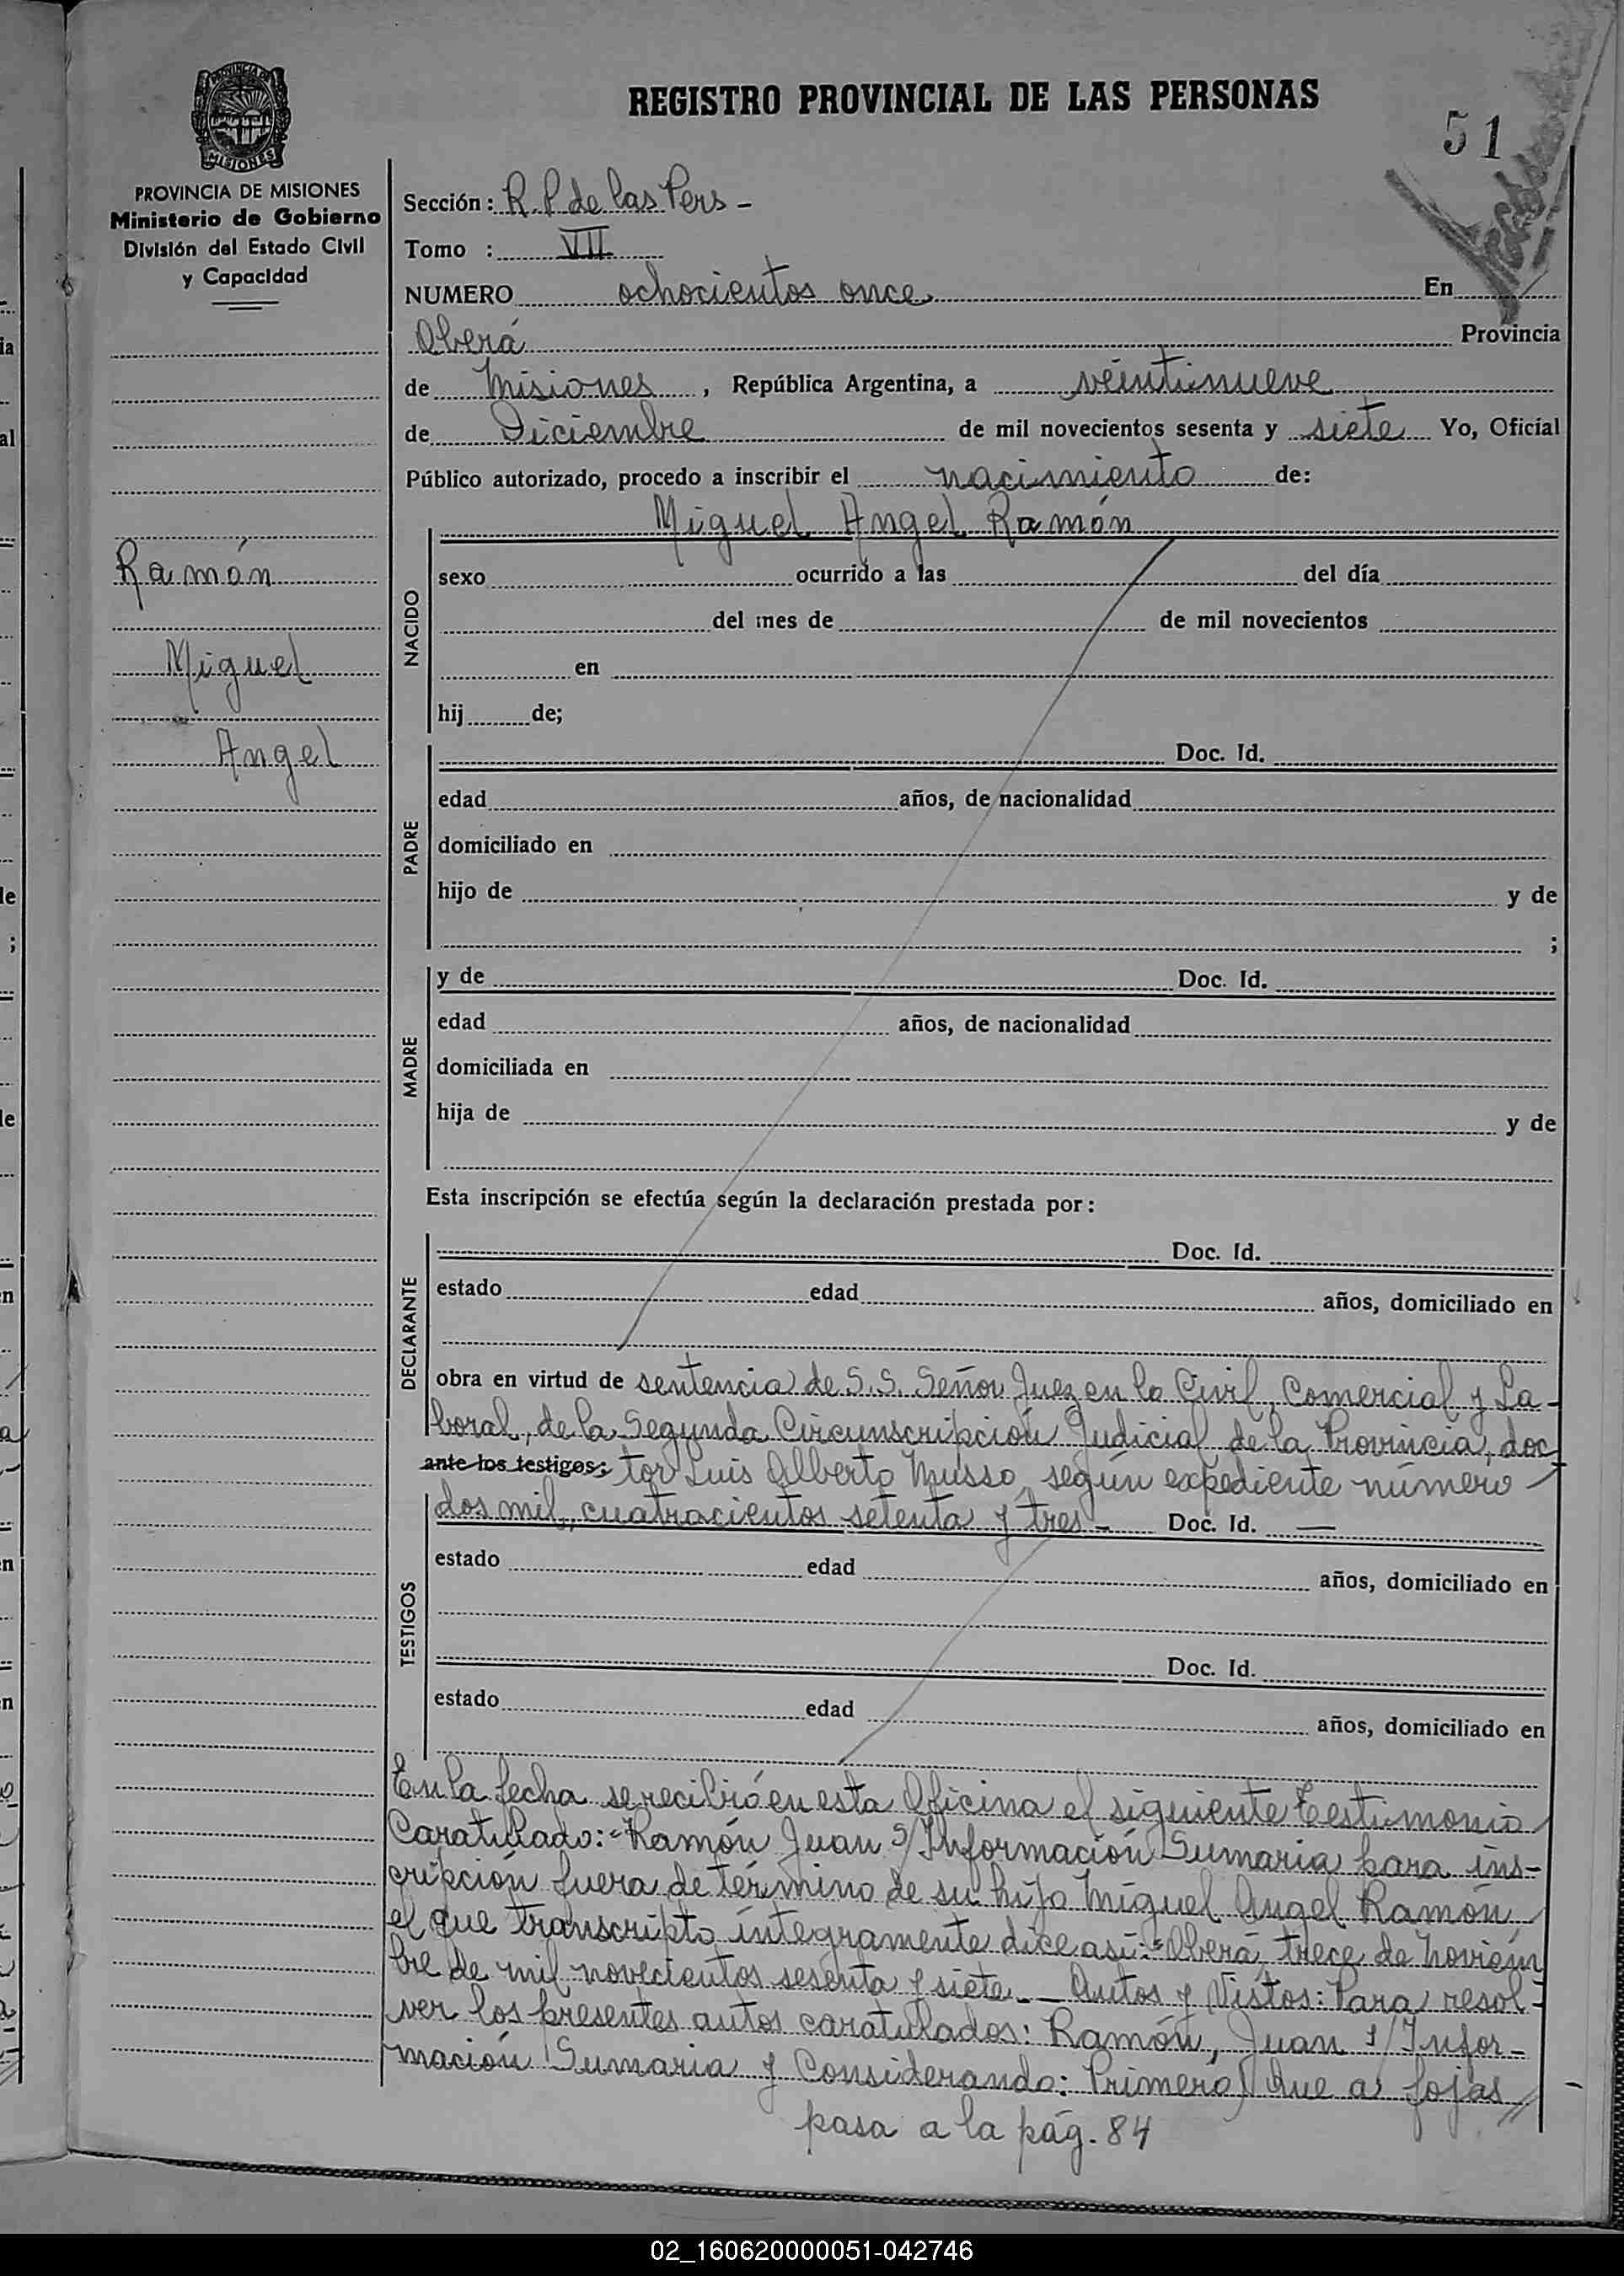 PROVINCIA DE
MISIONES
REGISTRO PROVINCIAL DE LAS PERSONAS
51
PROVINCIA DE MISIONES
Ministerio de Gobierno
División del Estado Civil
y Capacidad
Ramón
Miguel
Angel
Sección: R. P. de las Pers -
Tomo : VII
NUMERO ochocientos once En
Oberá Provincia
de Misiones, República Argentina, a veintinueve
de Diciembre de mil novecientos sesenta y siete Yo, Oficial
Público autorizado, procedo a inscribir el nacimiento de:
Miguel Angel Ramón
NACIDO
sexo ocurrido a las del día
del mes de de mil novecientos
en
hij de;
PADRE
Doc. Id.
edad años, de nacionalidad
domiciliado en
hijo de y de
;
MADRE
y de Doc. Id.
edad años, de nacionalidad
domiciliada en
hija de y de
Esta inscripción se efectúa según la declaración prestada por:
DECLARANTE
Doc. Id.
estado edad años, domiciliado en
obra en virtud de sentencia de S.S. Señor Juez en lo Civil, Comercial y La-
boral, de la Segunda Circunscripción Judicial de la Provincia, doc
ante los testigos: tor Luis Alberto Musso, según expediente número
dos mil, cuatrocientos setenta y tres - Doc. Id. —
TESTIGOS
estado edad años, domiciliado en
Doc. Id.
estado edad años, domiciliado en
En la fecha se recibió en esta Oficina el siguiente Testimonio
Caratulado: "Ramón Juan s/Información Sumaria para ins-
cripción fuera de término de su hijo Miguel Angel Ramón
el que transcripto íntegramente dice así: "Oberá, trece de Noviem
bre de mil novecientos sesenta y siete.- Autos y Vistos: Para resol-
ver los presentes autos caratulados: Ramón, Juan s/Infor-
mación Sumaria y Considerando: Primero) Que a fojas //
pasa a la pág. 84
02_160620000051-042746